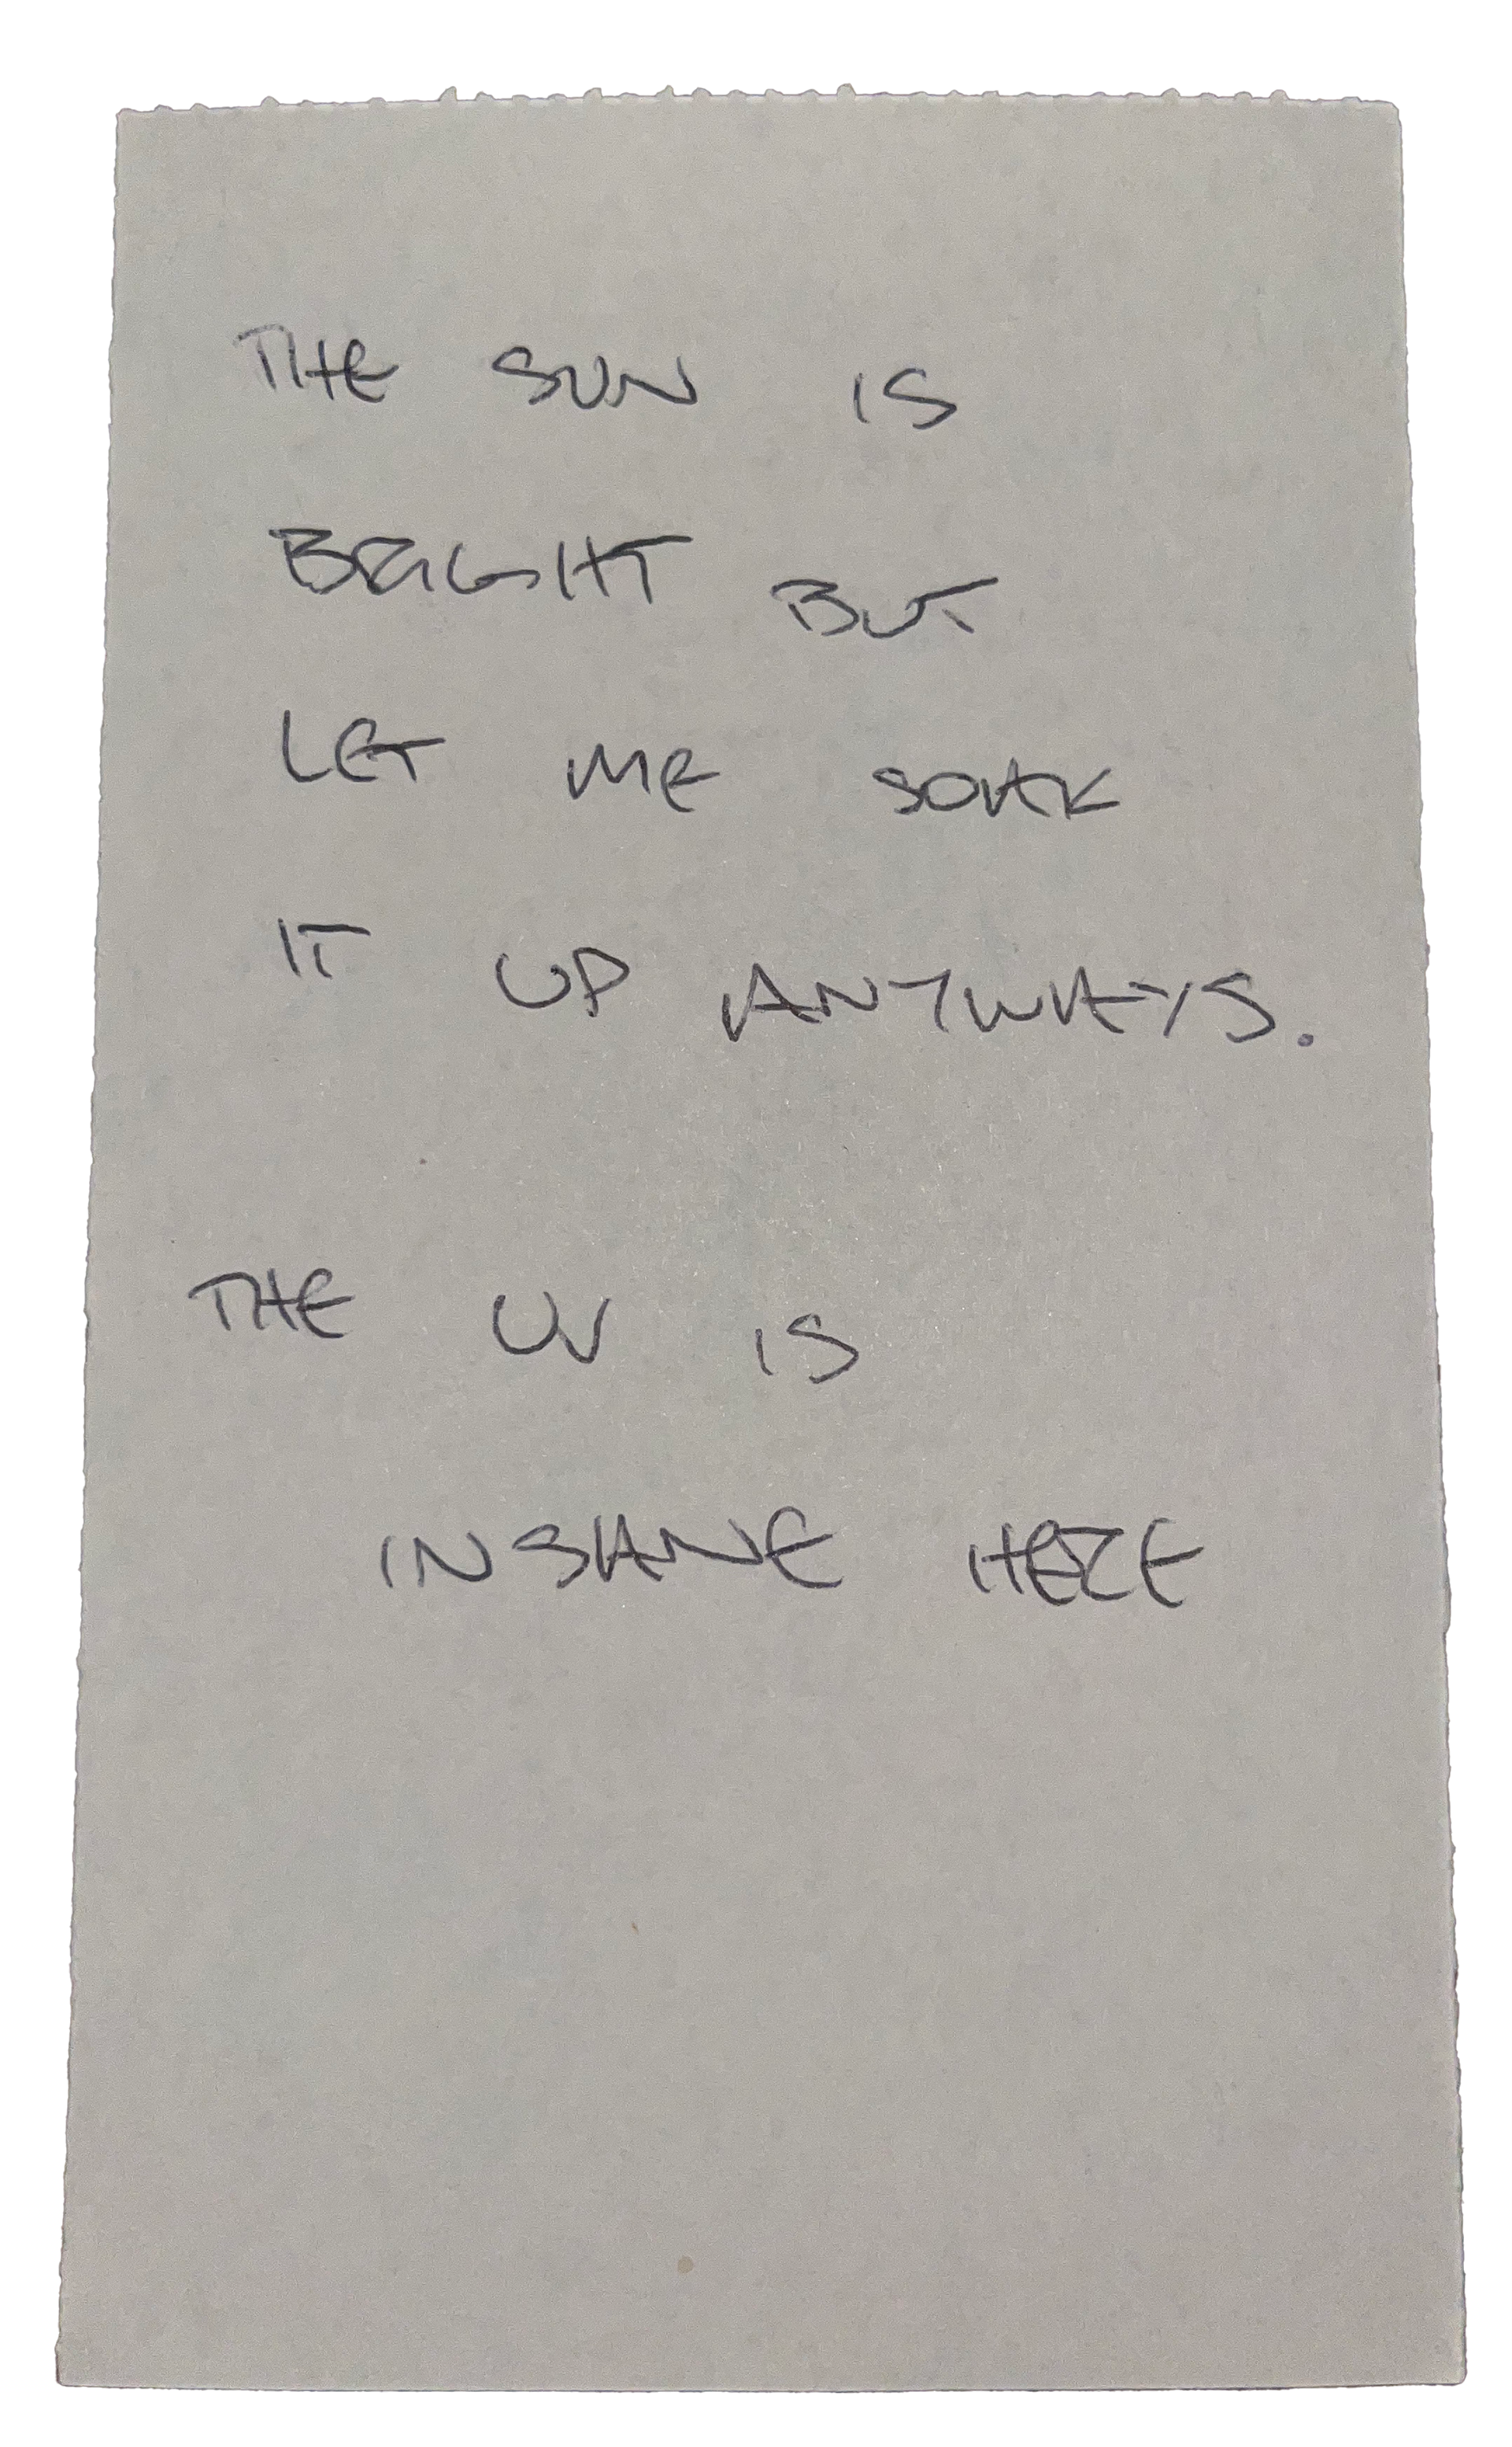 THE SUN IS
BRIGHT BUT
LET ME SOAK
IT UP ANYWAYS.
THE UV IS
INSANE HERE